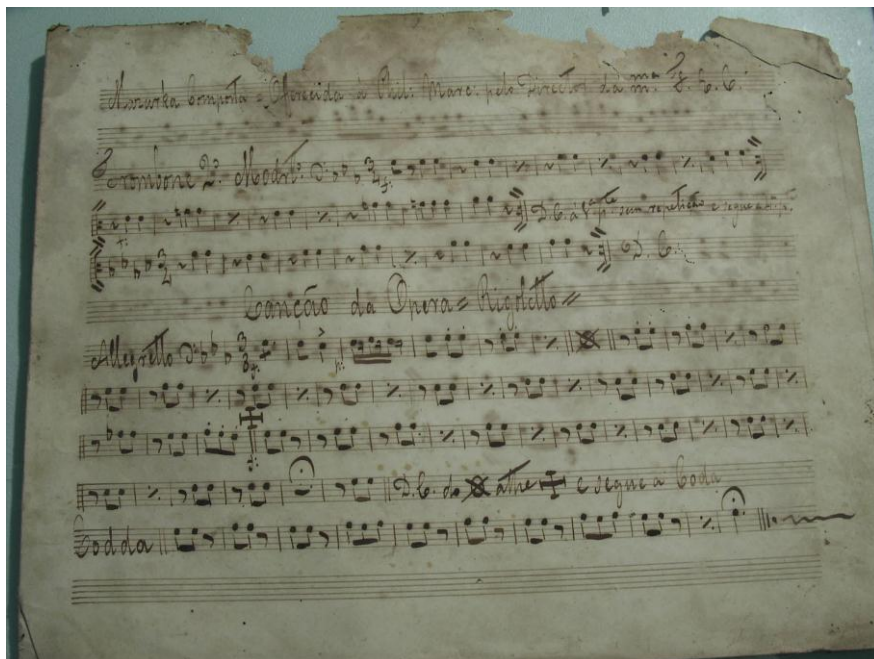 Mazurka Composta e Oferecida á Phil: Marc: pelo Director da mma
Trombone 2º. Modto:
D. C. á 1ª pte sem repetição e segue
D. C.
Canção da Opera = Rigoletto =
Allegretto
D. C. do athe e segue a Coda
Codda